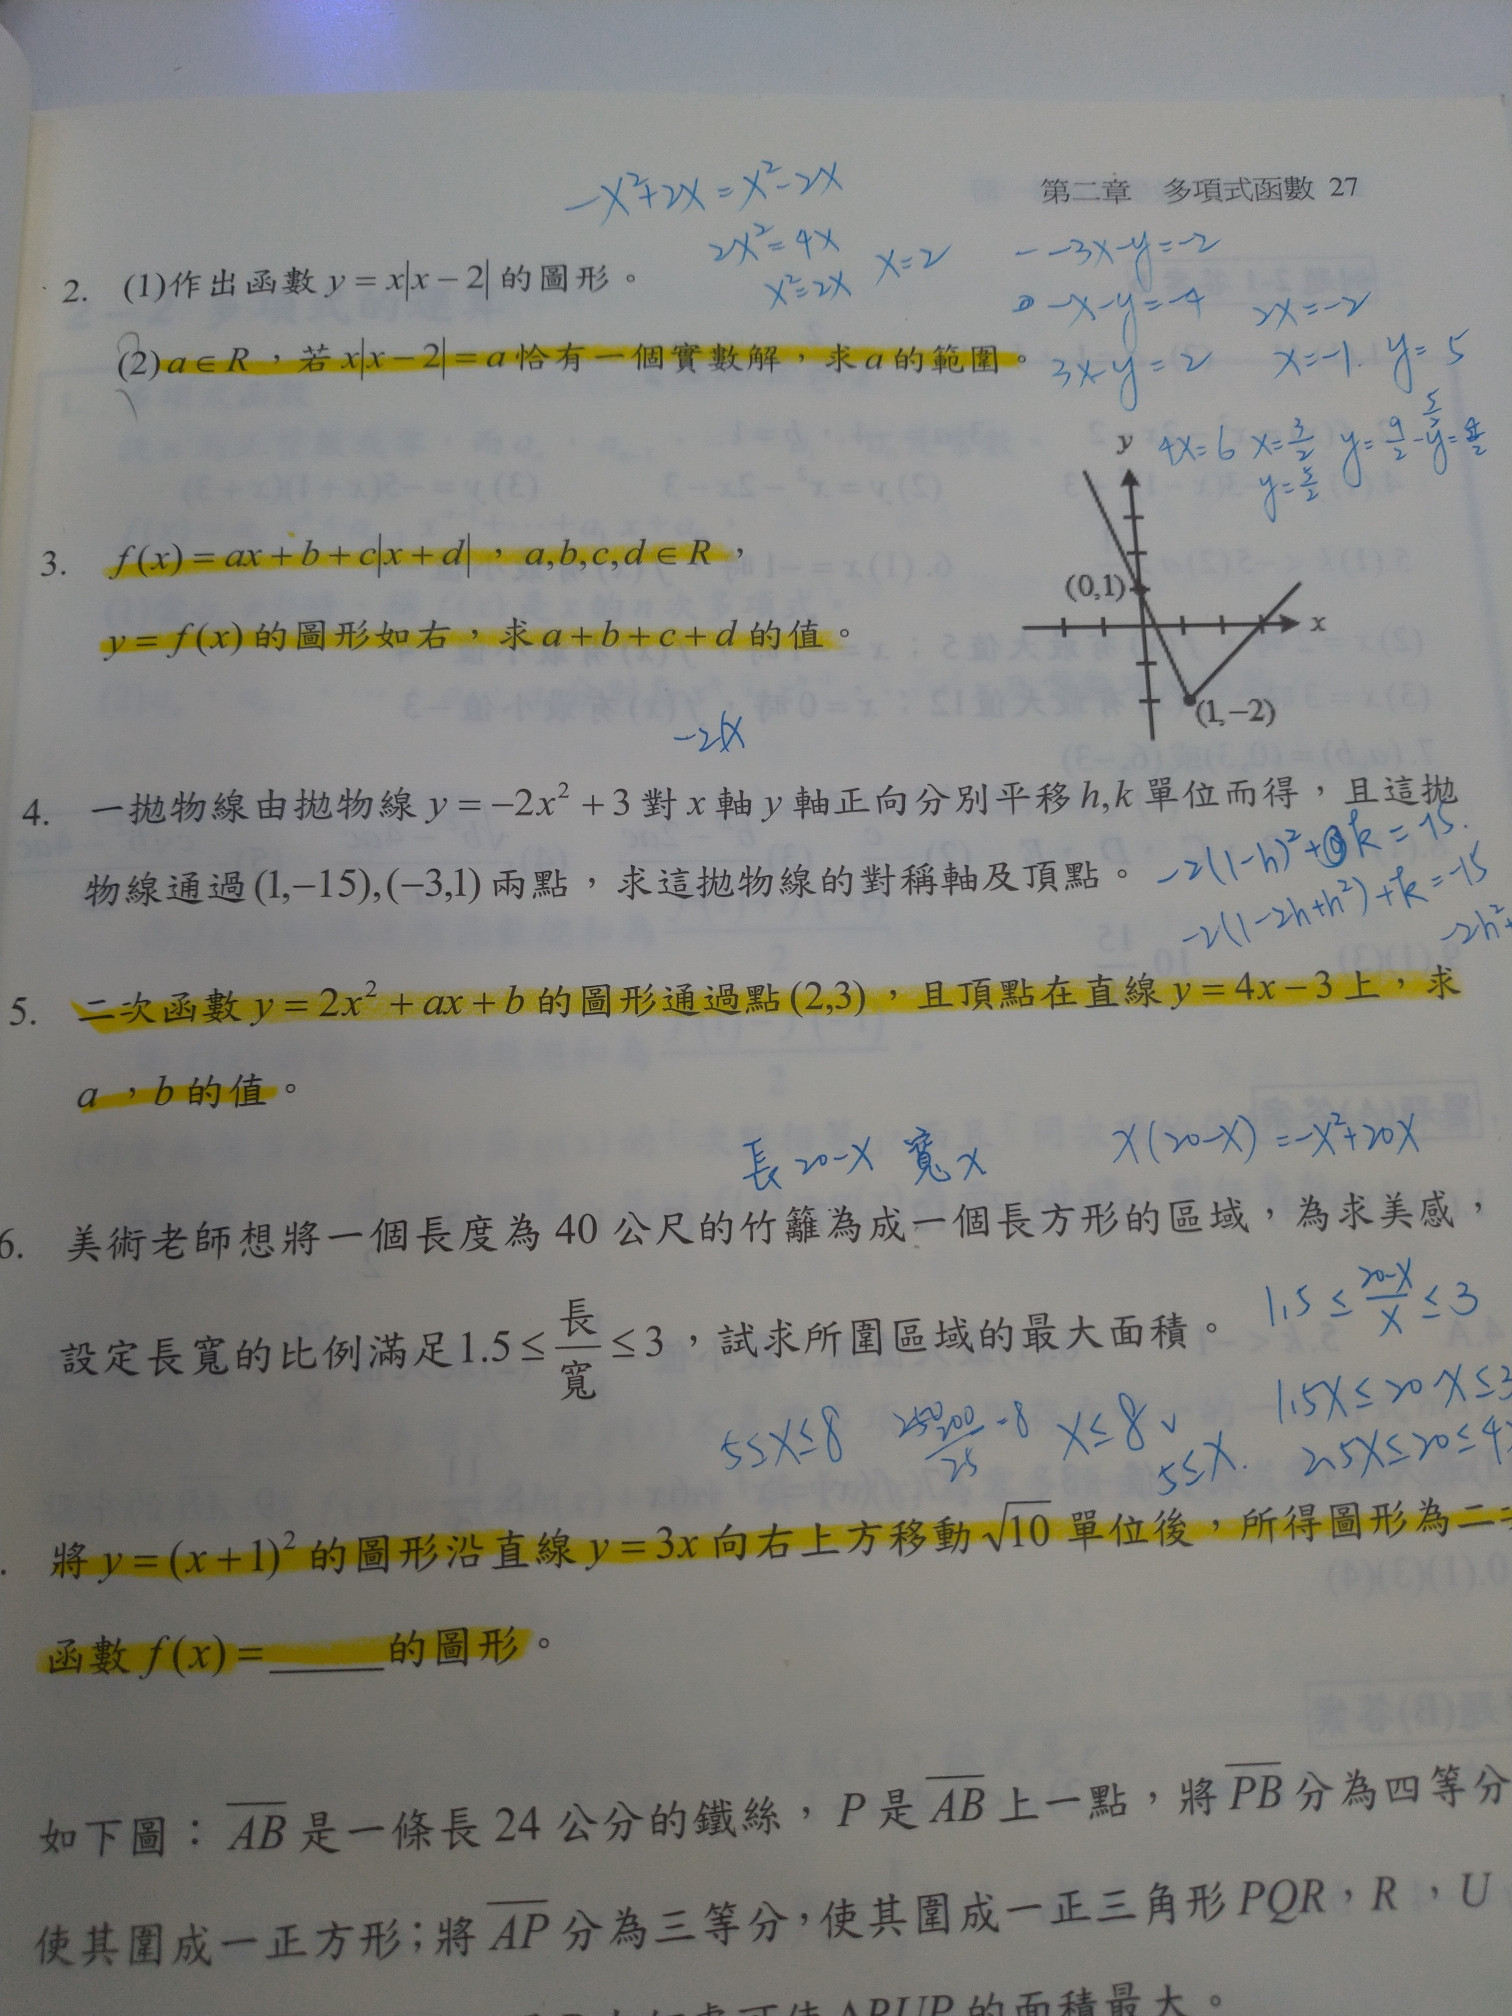 第二章 多項式函數 27
-x²+2x=x²-2x
2x²=4x
x²=2x x=2
--3x-y=-2
-x-y=-4 2x=-2
3x-y=2 x=-1. y=5
4x=6 x=3/2 y=9/2-y=
y=5/2
2. (1)作出函數 y=x|x-2| 的圖形。
(2) a∈R，若 x|x-2|=a 恰有一個實數解，求 a 的範圍。
3. f(x)=ax+b+c|x+d|，a,b,c,d∈R，
y=f(x) 的圖形如右，求 a+b+c+d 的值。
y
(0,1)
x
(1,-2)
4. 一拋物線由拋物線 y=-2x²+3 對 x 軸 y 軸正向分別平移 h,k 單位而得，且這拋
物線通過 (1,-15),(-3,1) 兩點，求這拋物線的對稱軸及頂點。
-2(1-h)²+k=-15.
-2(1-2h+h²)+k=-15
-2h²+
5. 二次函數 y=2x²+ax+b 的圖形通過點 (2,3)，且頂點在直線 y=4x-3 上，求
a，b 的值。
長 20-x 寬 x x(20-x)=-x²+20x
6. 美術老師想將一個長度為 40 公尺的竹籬為成一個長方形的區域，為求美感，
設定長寬的比例滿足 1.5≤長/寬≤3，試求所圍區域的最大面積。
1.5≤(20-x)/x≤3
1.5x≤20-x≤3
2.5x≤20≤4x
5≤x≤8 200/25=8 x≤8
5≤x.
將 y=(x+1)² 的圖形沿直線 y=3x 向右上方移動 √10 單位後，所得圖形為二
函數 f(x)=_____的圖形。
如下圖：AB 是一條長 24 公分的鐵絲，P 是 AB 上一點，將 PB 分為四等分
使其圍成一正方形；將 AP 分為三等分，使其圍成一正三角形 PQR，R，U
的面積最大。